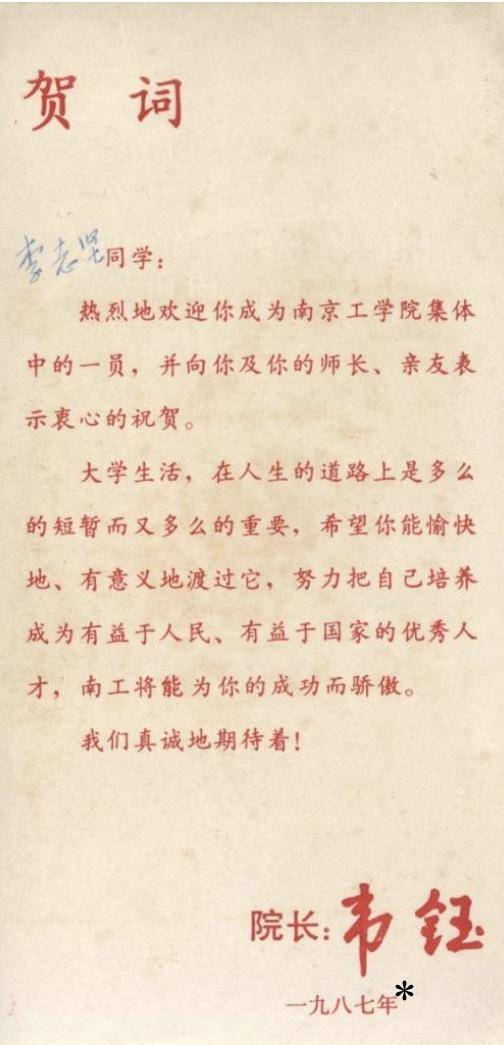 贺 词
李志坚同学：
热烈地欢迎你成为南京工学院集体
中的一员，并向你及你的师长、亲友表
示衷心的祝贺。
大学生活，在人生的道路上是多么
的短暂而又多么的重要，希望你能愉快
地、有意义地渡过它，努力把自己培养
成为有益于人民、有益于国家的优秀人
才，南工将能为你的成功而骄傲。
我们真诚地期待着！
院长：韦钰
一九八七年*